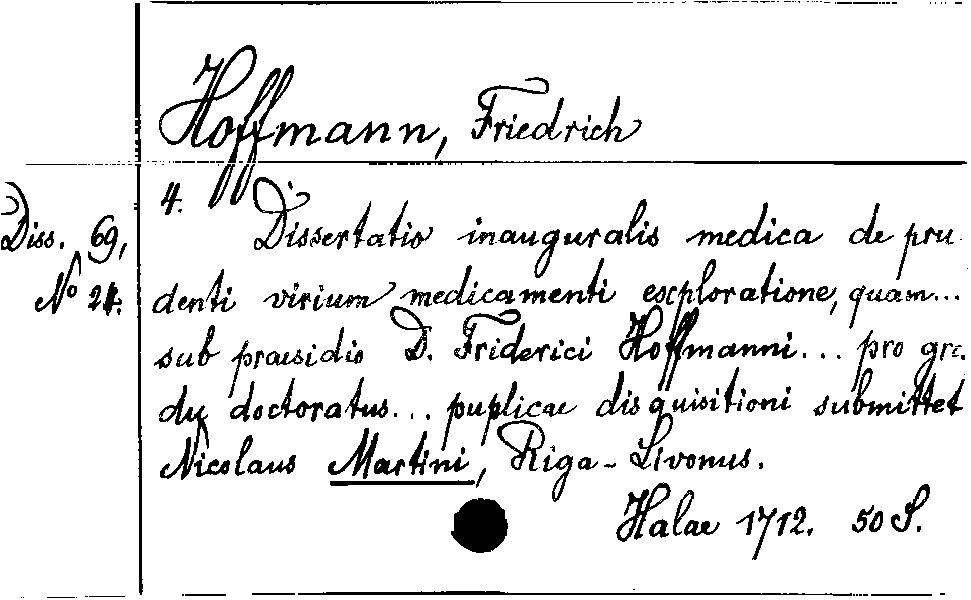 Hoffmann, Friedrich
4.
Diss. 69,
No 24.
Dissertatio inauguralis medica de pru
denti virium medicamenti escploratione, quam...
sub praesidio D. Friderici Hoffmanni... pro gra
du doctoratus... puplicae disquisitioni submittet
Nicolaus Martini, Riga-Livonus.
Halae 1712. 50 S.